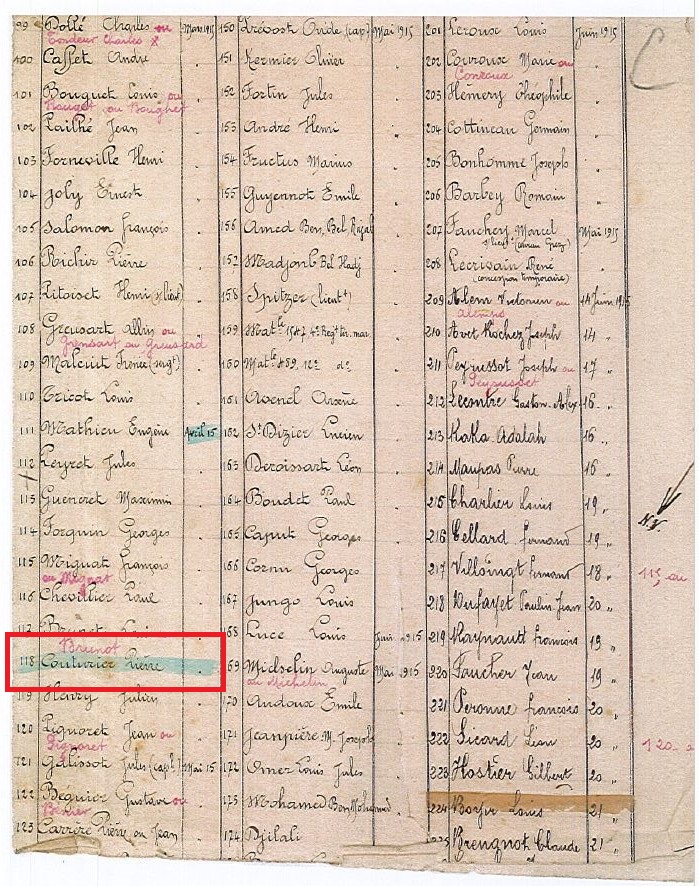 99 Dollé Charles ou Mars 1915
Tondeur Charles
100 Casset André "
101 Bouquet Louis ou "
Bauget ou Boughet
102 Lailhé Jean "
103 Forneville Henri "
104 Joly Ernest "
105 Salomon François "
106 Richir Pierre "
107 Pitoiset Henri (s/lieut) "
108 Greusart Albin ou "
Grensart ou Greusard
109 Malcuit Frenée (sergt) "
110 Tricot Louis "
111 Mathieu Eugène Avril 15
112 Leyret Jules "
113 Gueneret Maximin "
114 Forquin Georges "
115 Miguat François "
ou Mignat
116 Chevallier Paul "
117 Brunet Louis
Brunot
118 Couturier Pierre "
119 Henry Julien "
120 Pignoret Jean ou "
Pignoret
121 Galissot Jules (capl) Mai 15
122 Beguier Gustave ou "
123 Carrère Pierre ou Jean "
150 Prévost Ovide (cap) Mai 1915
151 Kermier Olivier
152 Fortin Jules
153 André Henri "
154 Fructus Marius "
155 Guyennot Emile "
156 Amed Ben Bel
157 Madjoub Bel Hadj "
158 Spitzer (lieutt) "
159 Matle 1547 4e Regt tir. mar.
160 Matle 459, 12e do
161 Avenel Arsène "
162 St Dizier Lucien "
163 Deroissart Léon "
164 Boudet Paul "
165 Caput Georges "
166 Cornu Georges "
167 Jungo Louis "
168 Luce Louis Juin 1915
169 Michelin Auguste Mai 1915
ou Michelin
170 Andoux Emile "
171 Jeanpière M. Joseph "
172 Omer Louis Jules "
173 Mohamed Ben Mohamed "
174 Djilali "
201 Leroux Louis Juin 1915
202 Corroux Marie ou "
Conraux
203 Hémery Théophile "
204 Cottineau Germain "
205 Bonhomme Joseph "
206 Barbey Romain "
207 Fauchey Marcel Mai 1915
s/lieut
208 Lecrivain René
(concession temporaire)
209 Alem ou 14 Juin 1915
210 Avet Rochez Joseph 14 "
211 Peyrussot Joseph ou 17 "
212 Lecontre Gaston Alex 16 "
213 Kaka Adalah 16 "
214 Maupas Pierre 16 "
215 Charlier Louis 19 "
216 Cellard Fernand 19 "
217 Villoingt Fernand 18 "
115 au
218 Dufayet Paulin Jean 20 "
219 Raynaud François 19 "
220 Faucher Jean 19 "
221 Peronne François 20 "
222 Sicard Léon 20 "
120
223 Hostier Gilbert 20 "
224 Boyer Louis 21 "
225 Brengnot Claude 21 "